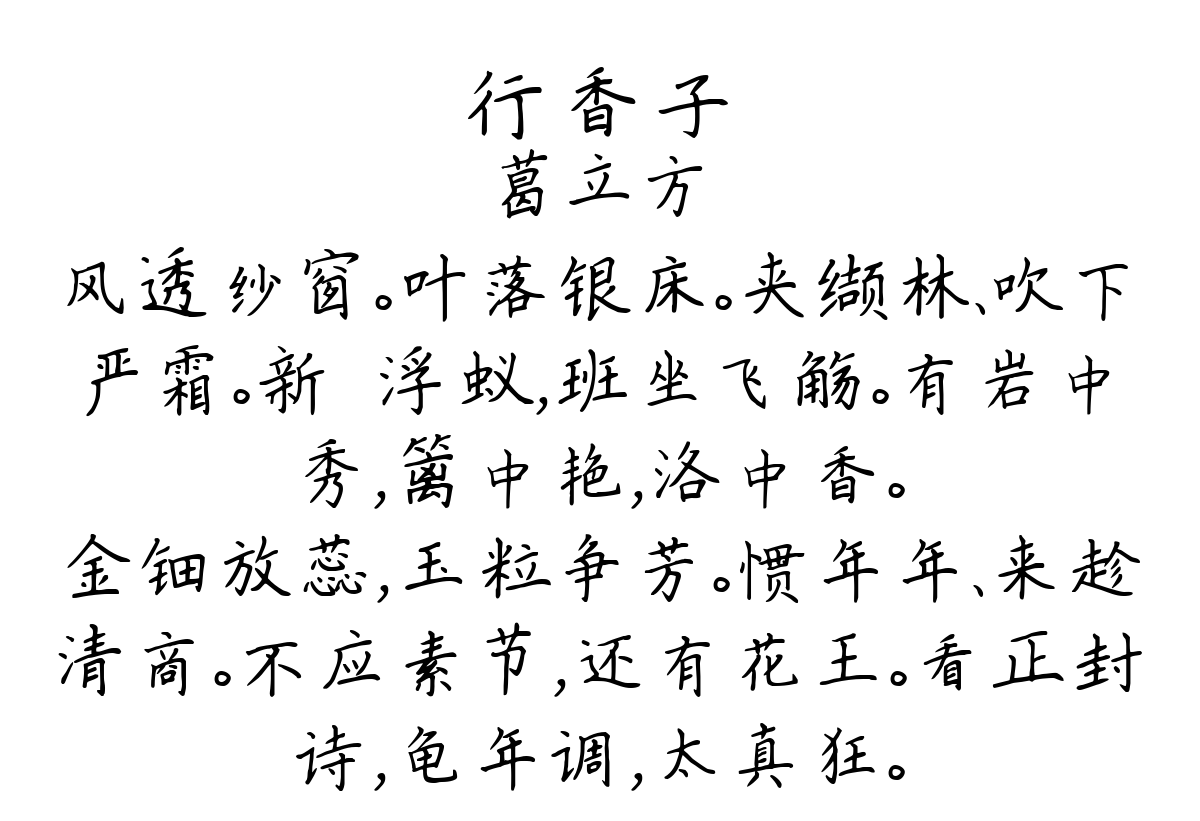 行香子
葛立方
风透纱窗。叶落银床。夹缬林、吹下
严霜。新 浮蚁,班坐飞觞。有岩中
秀,篱中艳,洛中香。
金钿放蕊,玉粒争芳。惯年年、来趁
清商。不应素节,还有花王。看正封
诗,龟年调,太真狂。